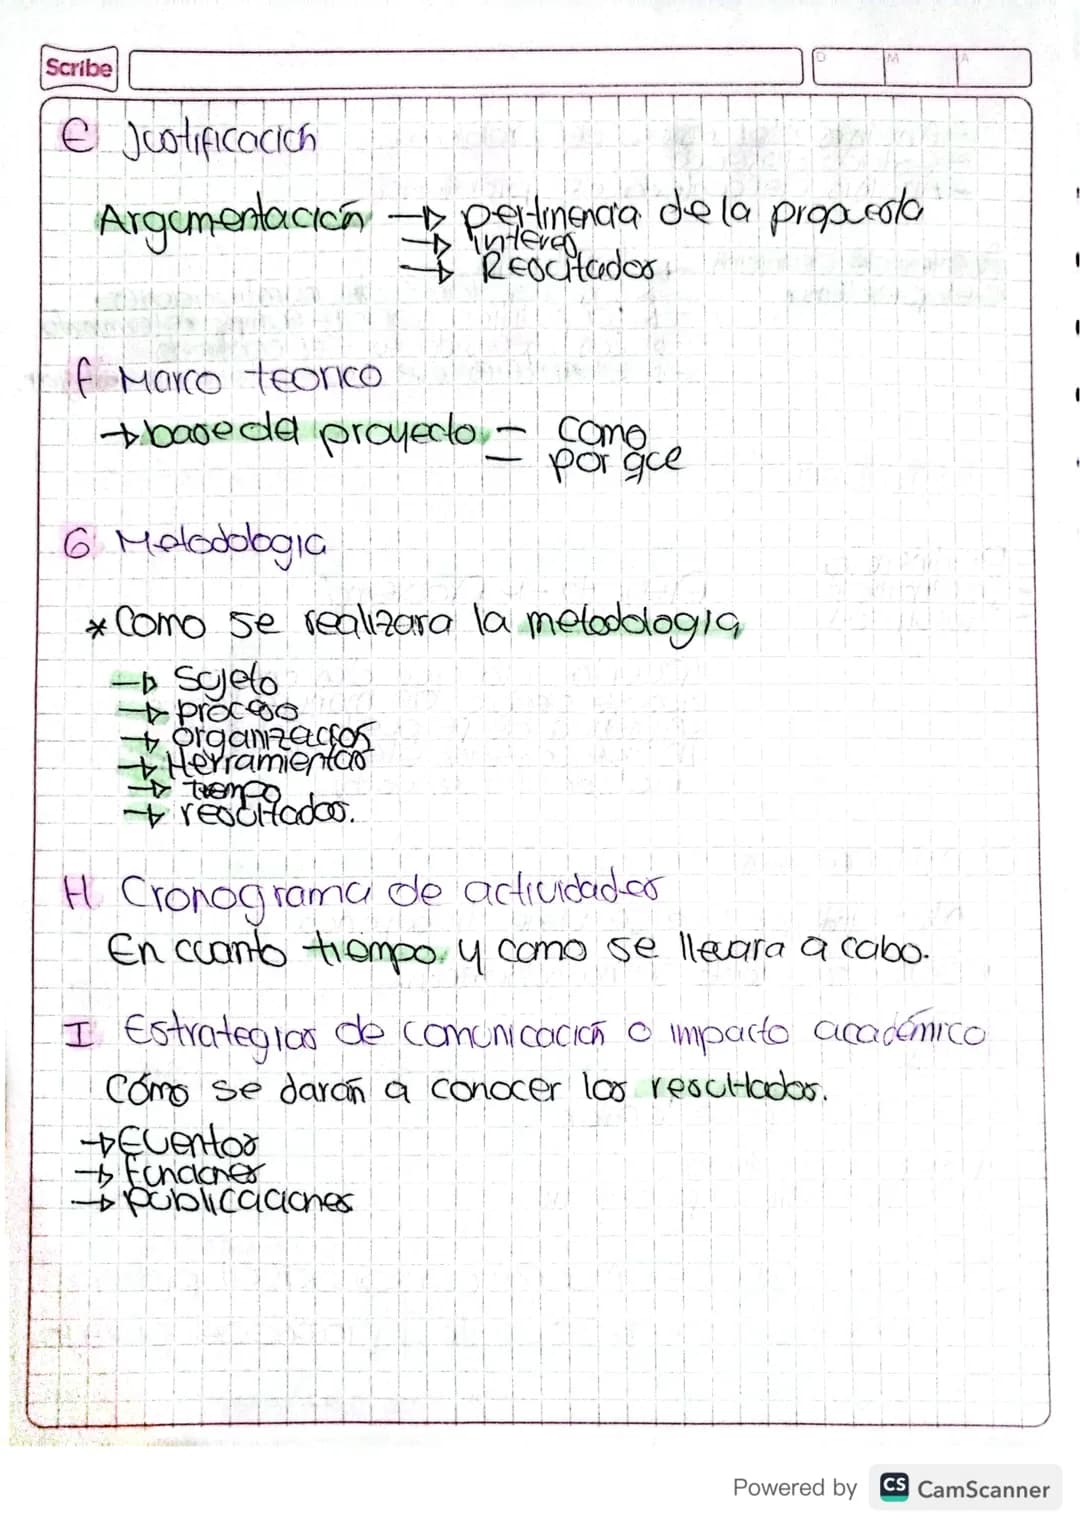 Scribe
D M A
E Justificación
Argumentación → pertinencia de la propuesta
→ interes
→ Resultados.
f Marco teorico
→ base del proyecto - como
- por que
G Metodologia
* Como se realizara la metodologia
→ Sujeto
→ proceso
→ organizacios
→ Herramientas
→ tiempo
→ resultados.
H Cronograma de actividades
En cuanto tiempo y como se llevara a cabo.
I Estrategias de comunicación o impacto académico
Cómo se darán a conocer los resultados.
→ Eventos
→ Funciones
→ publicaciones
Powered by CS CamScanner